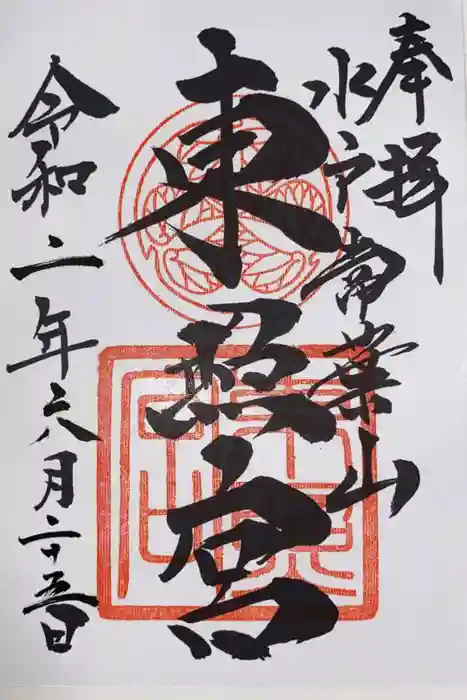 奉拝
水戸常葉山
東照宮
令和二年六月二十五日